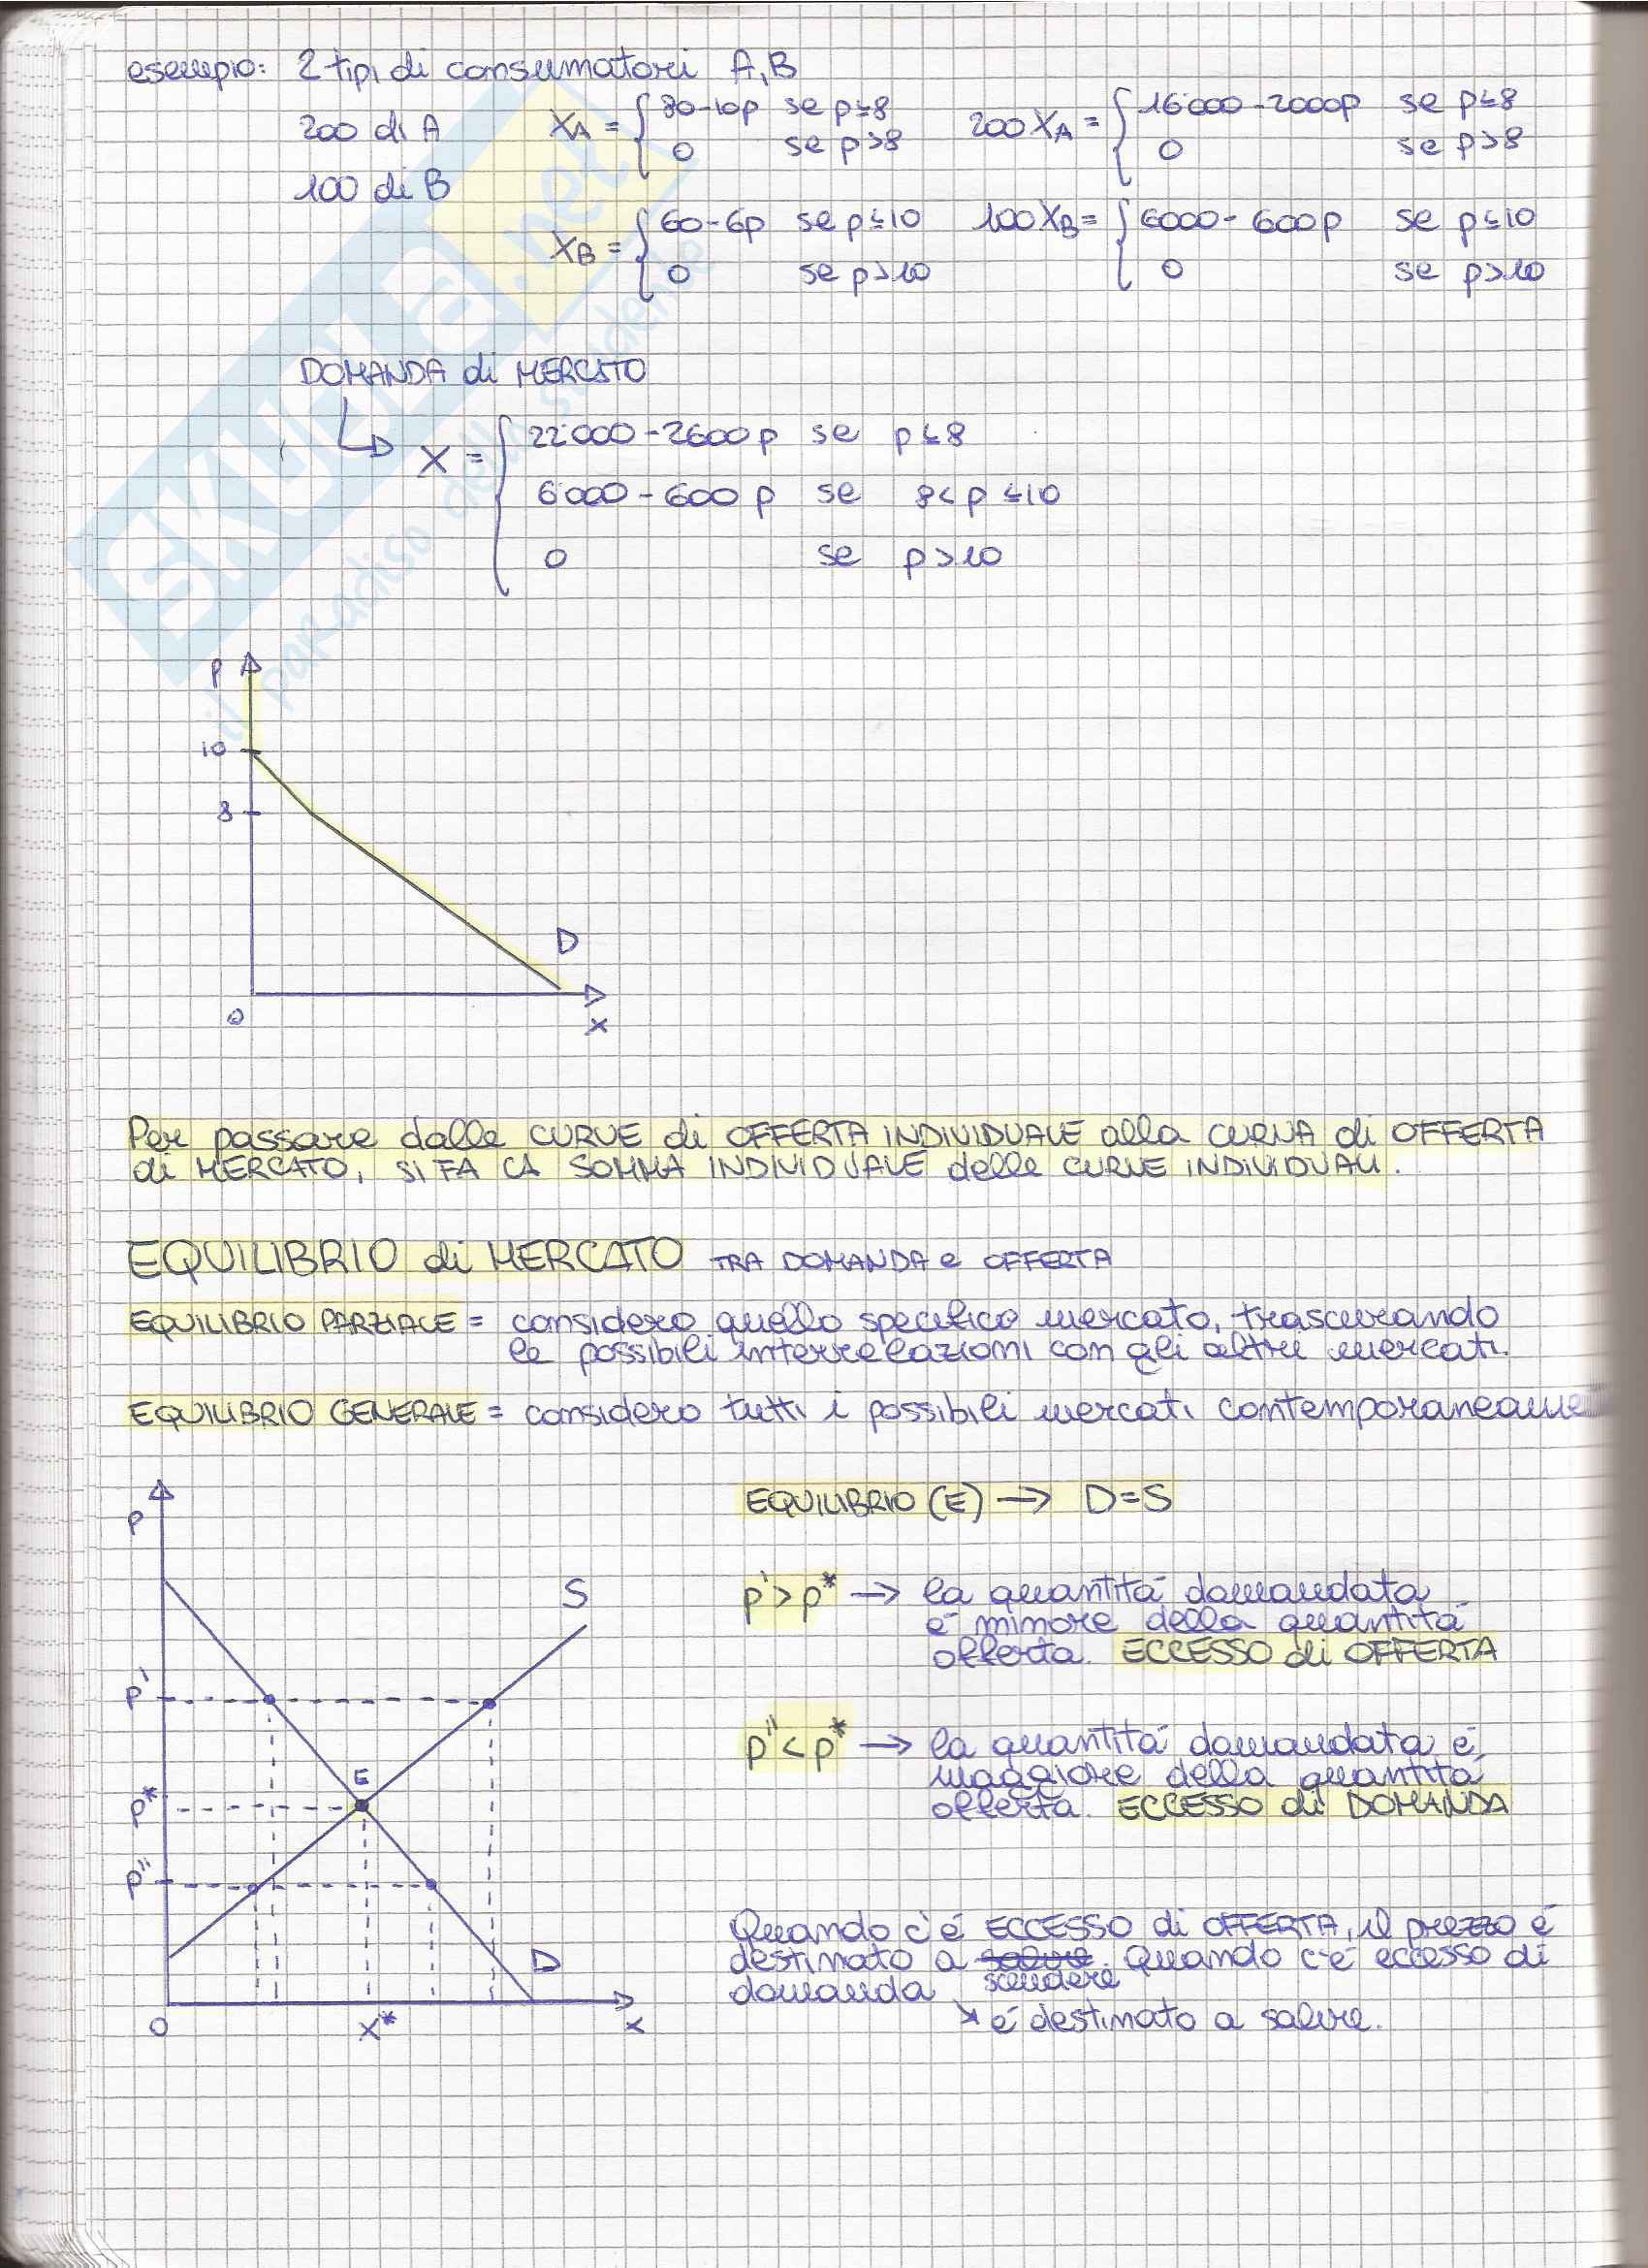 esempio: 2 tipi di consumatori A, B
200 di A
XA = { 80-10p se p≤8
0 se p>8
200XA = { 16'000-2000p se p≤8
0 se p>8
100 di B
XB = { 60-6p se p≤10
0 se p>10
100XB = { 6000-600p se p≤10
0 se p>10
DOMANDA di MERCATO
X = { 22'000-2600p se p≤8
6'000-600p se 8<p≤10
0 se p>10
SKUOLA.net
il paradiso dello studente
p
10
8
D
0
x
Per passare dalle CURVE di OFFERTA INDIVIDUALE alla CURVA di OFFERTA
di MERCATO, SI FA LA SOMMA INDIVIDUALE delle CURVE INDIVIDUALI.
EQUILIBRIO di MERCATO TRA DOMANDA e OFFERTA
EQUILIBRIO PARZIALE = considero quello specifico mercato, trascurando
le possibili interrelazioni con gli altri mercati.
EQUILIBRIO GENERALE = considero tutti i possibili mercati contemporaneame
P
S
p'
E
p*
p''
D
0
X*
x
EQUILIBRIO (E) → D=S
p'>p* → la quantità domandata
è minore della quantità
offerta. ECCESSO di OFFERTA
p''<p* → la quantità domandata è
maggiore della quantità
offerta. ECCESSO di DOMANDA
Quando c'è ECCESSO di OFFERTA, il prezzo è
destinato a salire. Quando c'è eccesso di
scendere
domanda
è destinato a salire.